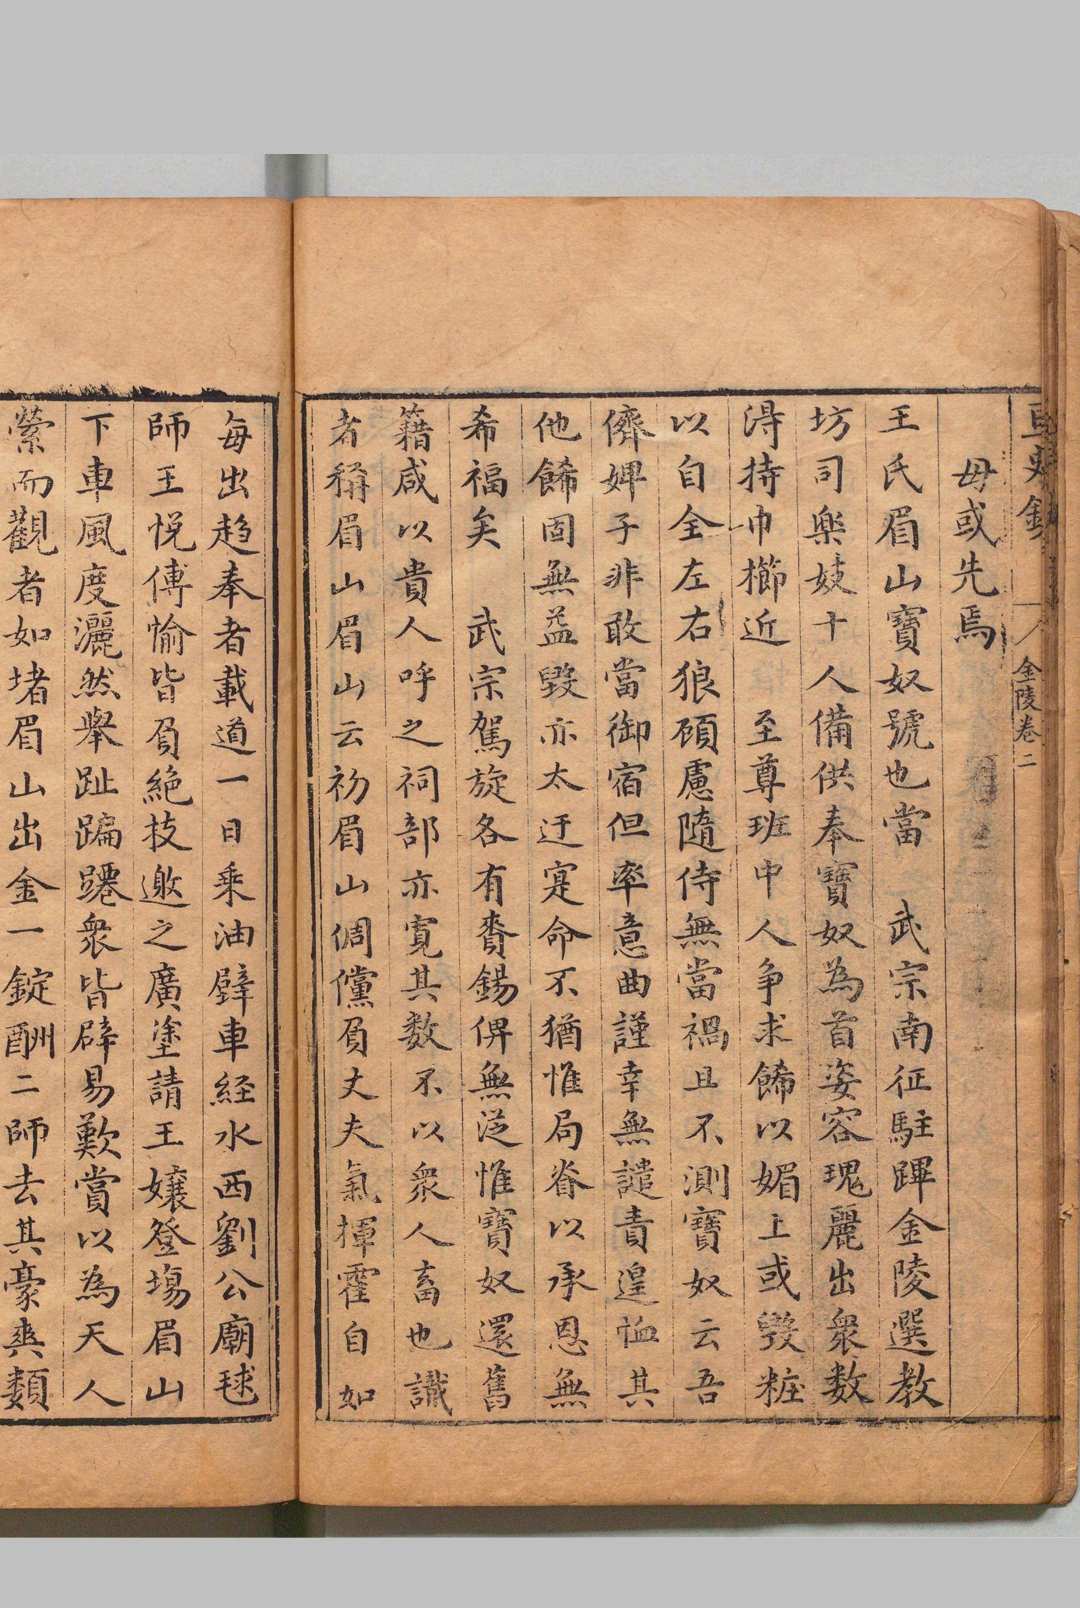 亘史鈔
金陵卷二
毋或先焉
王氏眉山寶奴號也當　武宗南征駐蹕金陵選教
坊司樂妓十人備供奉寶奴為首姿容瑰麗出衆数
淂持巾櫛近　至尊班中人争求餙以媚上或毀粧
以自全左右狼頋慮隨侍無當禍且不測寶奴云吾
儕婢子非敢當御宿但率意曲謹幸無譴責遑恤其
他餙固無益毀亦太迂寔命不猶惟局脊以承恩無
希福矣　武宗駕旋各有賚錫俾無泛惟寶奴還舊
籍咸以貴人呼之祠部亦寛其数不以衆人畜也識
者稱眉山眉山云初眉山倜儻負丈夫氣揮霍自如
每出趋奉者載道一日乘油壁車経水西劉公廟毬
師王悅傅愉皆負絶技邀之廣塗請王孃登塲眉山
下車風度灑然舉趾蹁躚衆皆辟易歎賞以為天人
縈而觀者如堵眉山出金一錠酬二師去其豪爽類